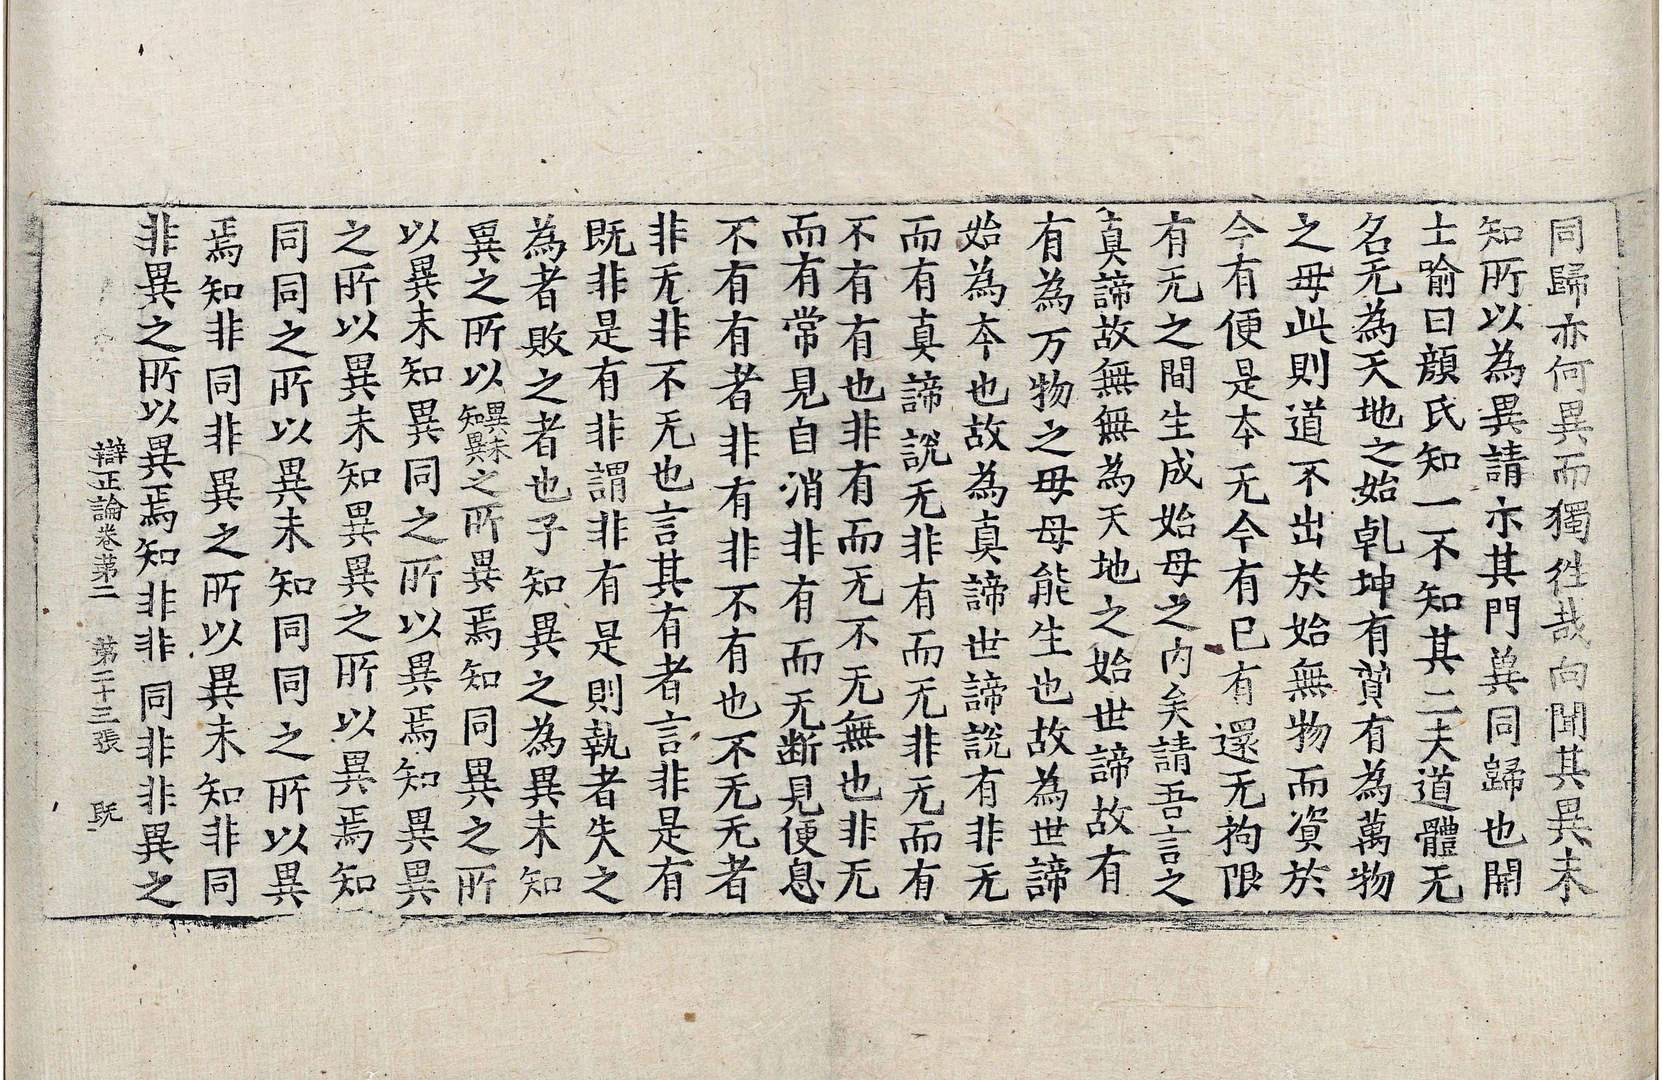 同歸亦何異而獨徃哉向聞其異未
知所以為異請亦其門兾同歸也開
士喻曰顔氏知一不知其二夫道體无
名无為天地之始乹坤有貿有為萬物
之母此則道不出於始無物而資於
今有便是本无今有已有還无拘限
有无之間生成始母之內矣請吾言之
真諦故無無為天地之始世諦故有
有為万物之母母能生也故為世諦
始為本也故為真諦世諦說有非无
而有真諦說无非有而无非无而有
不有有也非有而无不无無也非无
而有常見自消非有而无断見便息
不有有者非有非不有也不无无者
非无非不无也言其有者言非是有
既非是有非謂非有是則執者失之
為者敗之者也子知異之為異未知
異之所以異未知異之所異焉知同異之所
以異未知異同之所以異焉知異異
之所以異未知異異之所以異焉知
同同之所以異未知同同之所以異
焉知非同非異之所以異未知非同
非異之所以異焉知非非同非非異之
辯正論卷第二 第二十三張 既